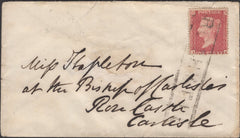 Miss Stapleton
at the Bishop of Carlisle's
Rose Castle
Carlisle